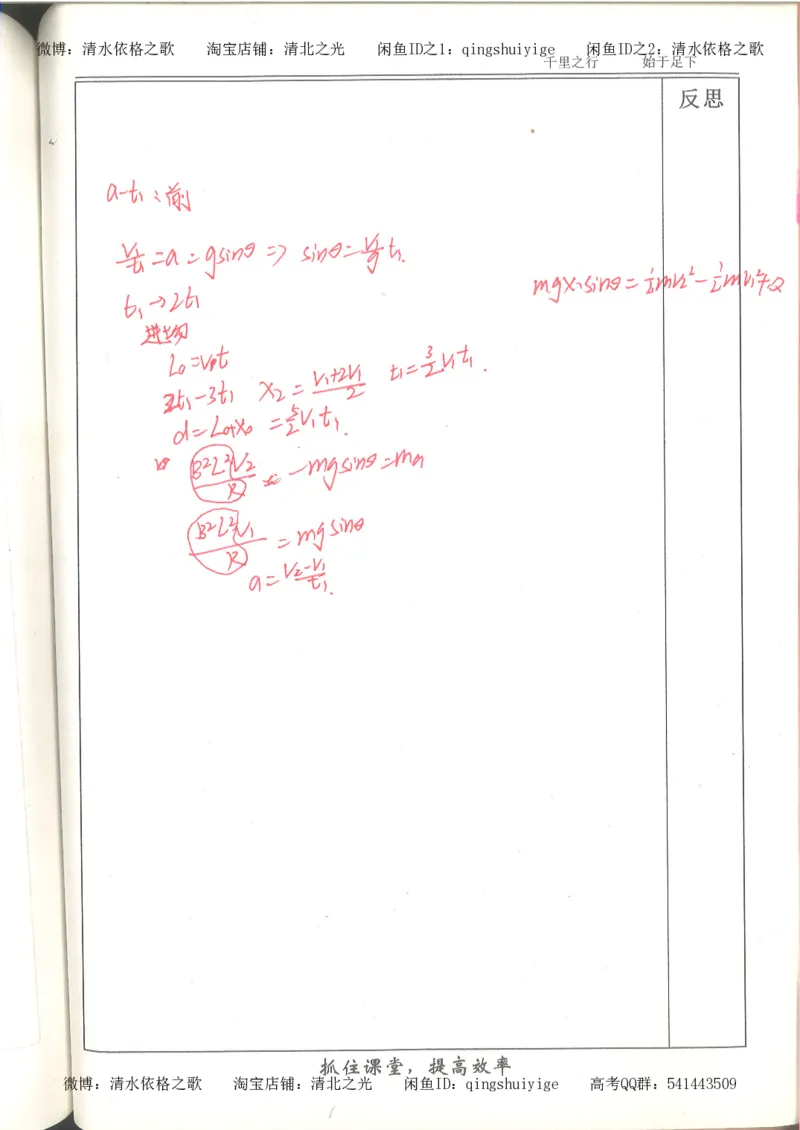 微博：清水依格之歌 淘宝店铺：清北之光 闲鱼ID之1：qingshuiyige 闲鱼ID之2：清水依格之歌
千里之行 始于足下
反思
a-t₁：前
v₁/t₁=a=gsinθ⇒sinθ=
mgx·sinθ=½mv₂²-½mv₁²+Q
t₁→2t₁
进场
L₀=v₁t
2t₁-3t₁ x₂=(v₁+2v₁)/2 t₁=3/2v₁t₁.
d=L₀+x₀=5/2v₁t₁.
B²L²v₂/R -mgsinθ=ma
B²L²v₁/R=mgsinθ
a=(v₂-v₁)/t₁.
抓住课堂，提高效率
微博：清水依格之歌 淘宝店铺：清北之光 闲鱼ID：qingshuiyige 高考QQ群：541443509